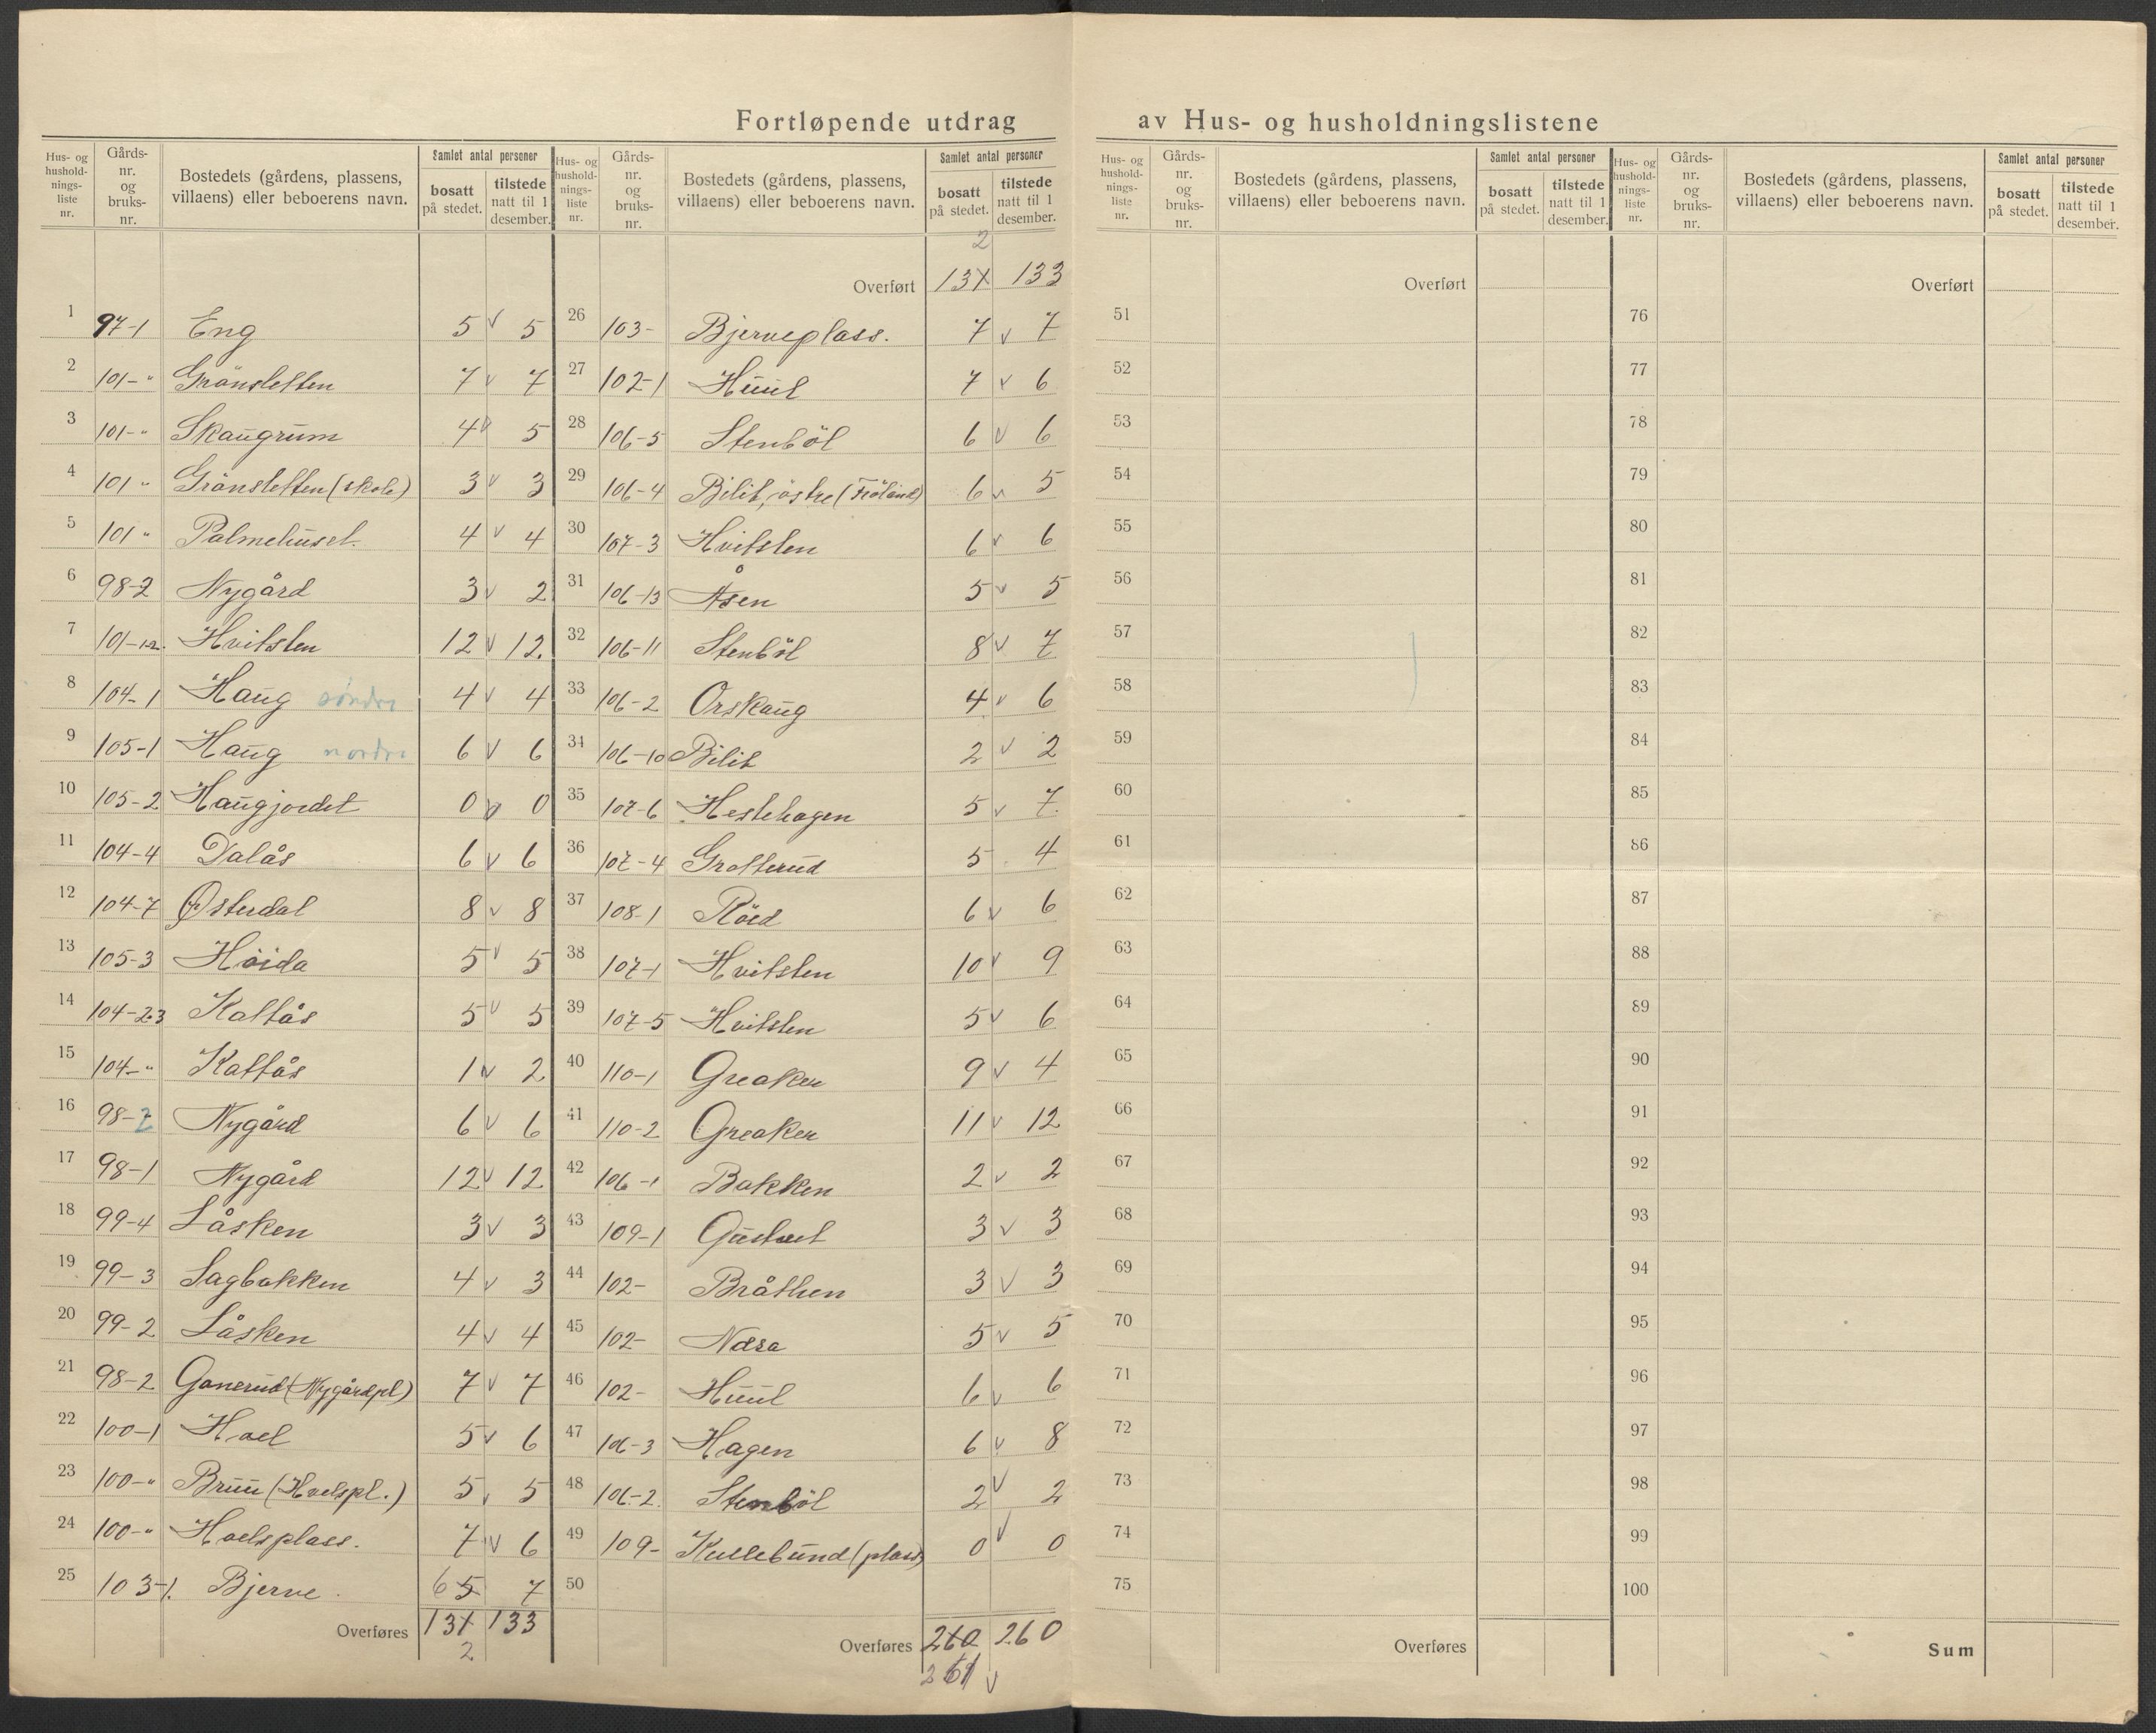 Fortløpende utdrag av Hus- og husholdningslistene
Hus- og husholdningsliste nr. Gårds-nr. og bruks-nr. Bostedets (gårdens, plassens, villaens) eller beboerens navn. Samlet antal personer bosatt på stedet. tilstede natt til 1 desember.
1 97-1 Eng 5 v 5
2 101-" Grönsletten 7 v 7
3 101-" Skaugrum 4 v 5
4 101 " Grönsletten (skole) 3 v 3
5 101 " Palmehuset. 4 v 4
6 98-2 Nygård 3 v 2
7 101-12. Hvitsten 12 v 12.
8 104-1 Haug söndre 4 v 4
9 105-1 Haug nordre 6 v 6
10 105-2 Haugjordet 0 v 0
11 104-4 Dalås 6 v 6
12 104-7 Østerdal 8 v 8
13 105-3 Höida 5 v 5
14 104-2.3 Kattås 5 v 5
15 104-" Kattås 1 v 2
16 98-2 Nygård 6 v 6
17 98-1 Nygård 12 v 12
18 99-4 Låsken 3 v 3
19 99-3 Sagbakken 4 v 3
20 99-2 Låsken 4 v 4
21 98-2 Ganerud (Nygårdpl) 7 v 7
22 100-1 Hoel 5 v 6
23 100-" Bruu (Hoelspl.) 5. 5
24 100-" Hoelsplass. 7 v 6
25 103-1. Bjerve. 6 5 7
Overføres 131 133
2
Hus- og husholdningsliste nr. Gårds-nr. og bruks-nr. Bostedets (gårdens, plassens, villaens) eller beboerens navn. Samlet antal personer bosatt på stedet. tilstede natt til 1 desember.
2
Overført 131 133
26 103- Bjerveplass. 7 v 7
27 102-1 Huul 7 v 6
28 106-5 Stenböl 6 v 6
29 106-4 Bilit, östre (Fröland) 6 v 5
30 107-3 Hvitsten 6 v 6
31 106-13 Åsen 5 v 5
32 106-11 Stenböl 8 v 7
33 106-2 Orskaug 4 v 6
34 106-10 Bilit 2 v 2
35 107-6 Hestehagen 5 v 7
36 107-4 Grotterud 5 4
37 108-1 Röed 6 v 6
38 107-1 Hvitsten 10 v 9
39 107-5 Hvitsten 5 v 6
40 110-1 Greaker 9 v 4
41 110-2 Greaker 11 v 12
42 106-1 Bakken 2 v 2
43 109-1 3 v 3
44 102- Bråthen 3 v 3
45 102- Næra 5 v 5
46 102- Huul 6 v 6
47 106-3 Hagen 6 v 8
48 106-2. Stenböl 2 v 2
49 109- Kullebund (plass) 0 v 0
50
Overføres 260 260
261 v
Hus- og husholdningsliste nr. Gårds-nr. og bruks-nr. Bostedets (gårdens, plassens, villaens) eller beboerens navn. Samlet antal personer bosatt på stedet. tilstede natt til 1 desember.
Overført
51
52
53
54
55
56
57
58
59
60
61
62
63
64
65
66
67
68
69
70
71
72
73
74
75
Overføres
Hus- og husholdningsliste nr. Gårds-nr. og bruks-nr. Bostedets (gårdens, plassens, villaens) eller beboerens navn. Samlet antal personer bosatt på stedet. tilstede natt til 1 desember.
Overført
76
77
78
79
80
81
82
83
84
85
86
87
88
89
90
91
92
93
94
95
96
97
98
99
100
Sum